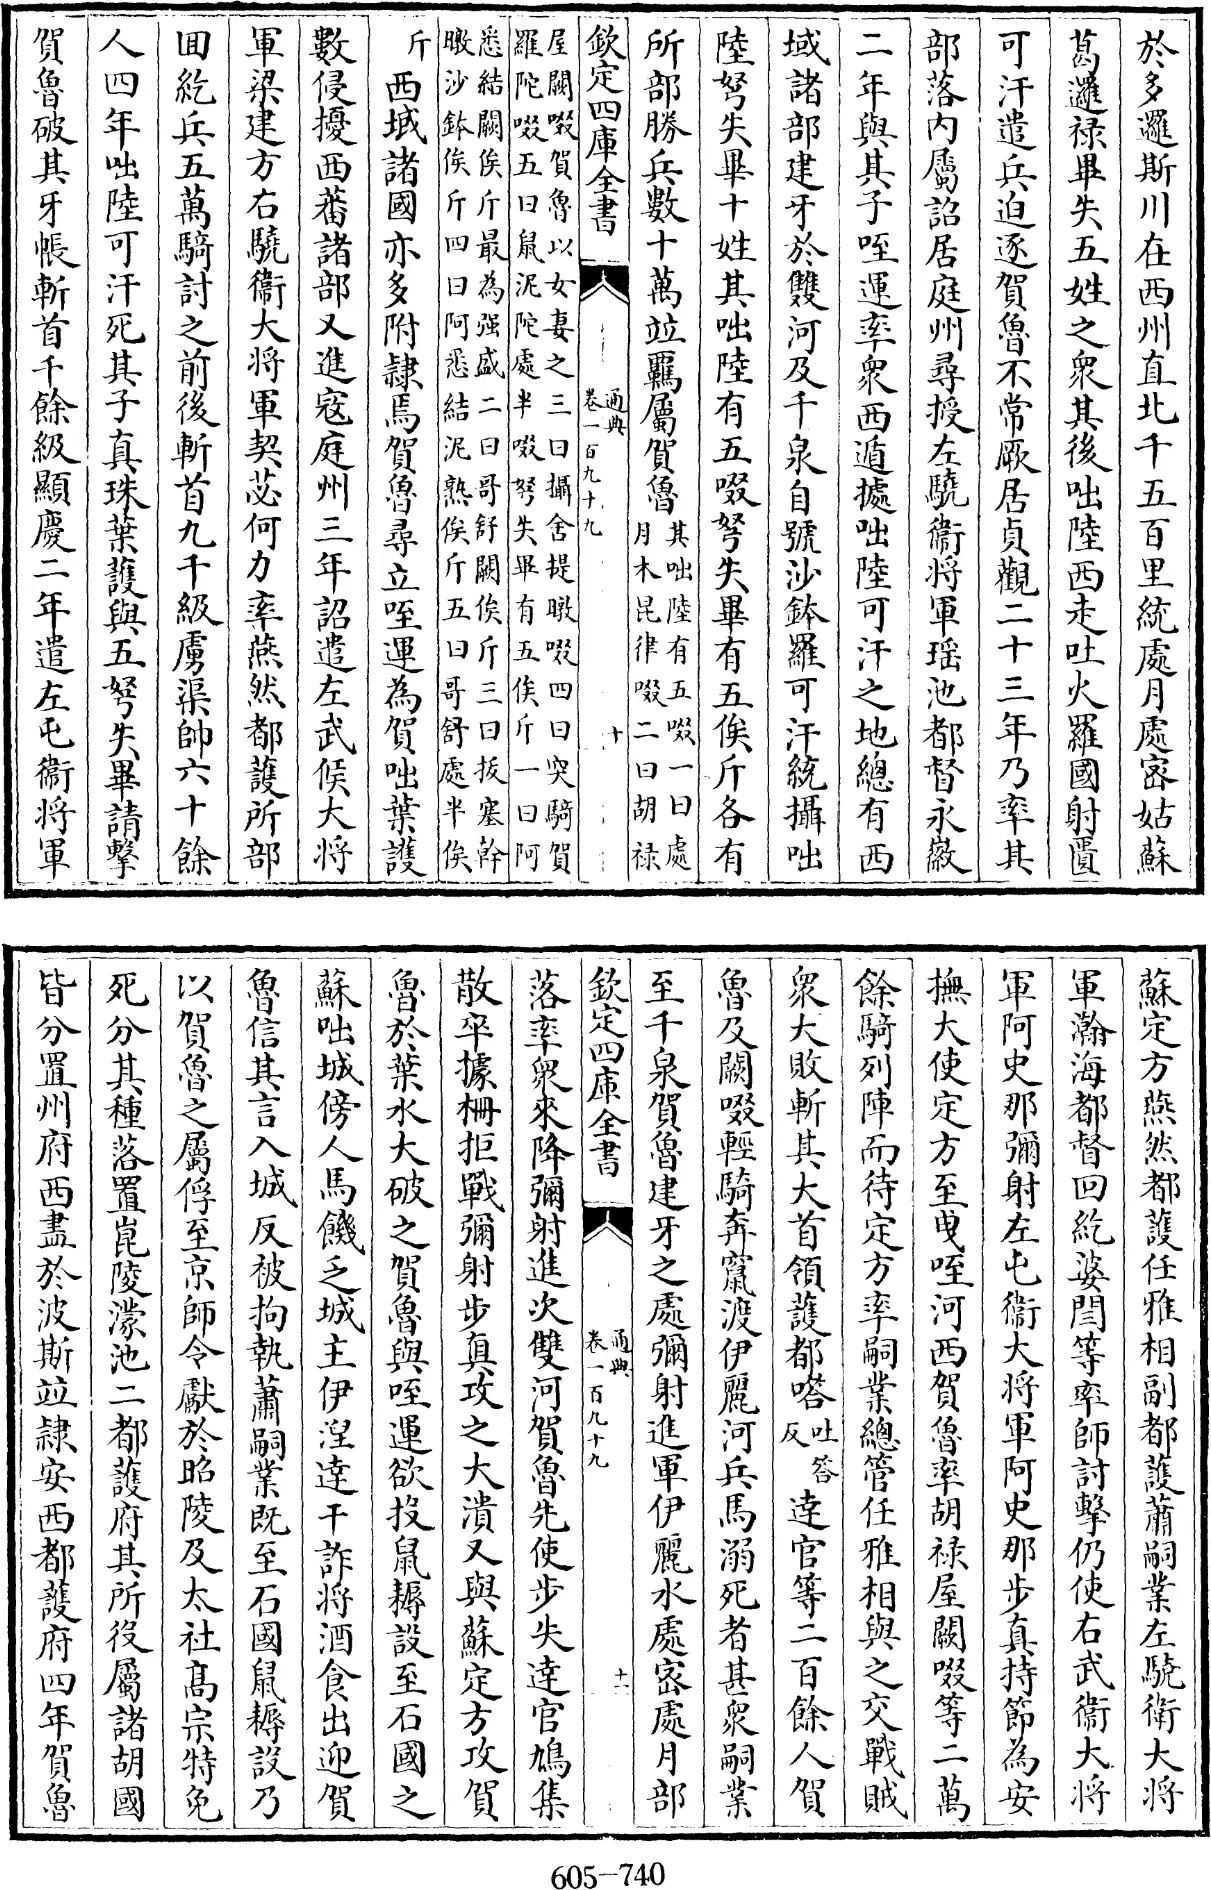 於多邏斯川在西州直北千五百里統處月處密姑蘇
葛邏祿畢失五姓之衆其後咄陸西走吐火羅國射匱
可汗遣兵迫逐賀魯不常厥居貞觀二十三年乃率其
部落内屬詔居庭州尋授左驍衞將軍瑶池都督永徽
二年與其子咥運率衆西遁據咄陸可汗之地總有西
域諸部建牙於雙河及千泉自號沙鉢羅可汗統攝咄
陸弩失畢十姓其咄陸有五啜弩失畢有五俟斤各有
所部勝兵數十萬竝羈屬賀魯其咄陸有五啜一曰處
月木昆律啜二曰胡禄
欽定四庫全書
通典
卷一百九十九
十
屋闕啜賀魯以女妻之三曰攝舍提暾啜四曰突騎賀
羅陀啜五曰鼠泥陀處半啜弩失畢有五俟斤一曰阿
悉結闕俟斤最為强盛二曰哥舒闕俟斤三曰拔塞幹
暾沙鉢俟斤四曰阿悉結泥熟俟斤五曰哥舒處半俟
斤
西域諸國亦多附隷焉賀魯尋立咥運為賀咄葉護
數侵擾西蕃諸部又進寇庭州三年詔遣左武候大將
軍梁建方右驍衞大將軍契苾何力率燕然都護所部
回紇兵五萬騎討之前後斬首九千級虜渠帥六十餘
人四年咄陸可汗死其子真珠葉護與五弩失畢請擊
賀魯破其牙帳斬首千餘級顯慶二年遣左屯衞將軍
蘇定方燕然都護任雅相副都護蕭嗣業左驍衛大將
軍瀚海都督回紇婆閏等率師討擊仍使右武衞大將
軍阿史那彌射左屯衞大將軍阿史那步真持節為安
撫大使定方至曳咥河西賀魯率胡禄屋闕啜等二萬
餘騎列陣而待定方率嗣業總管任雅相與之交戰賊
衆大敗斬其大首領護都㗳吐答
反達官等二百餘人賀
魯及闕啜輕騎奔竄渡伊麗河兵馬溺死者甚衆嗣業
至千泉賀魯建牙之處彌射進軍伊麗水處密處月部
欽定四庫全書
通典
卷一百九十九
十一
落率衆來降彌射進次雙河賀魯先使步失達官鳩集
散卒據柵拒戰彌射步真攻之大潰又與蘇定方攻賀
魯於葉水大破之賀魯與咥運欲投鼠耨設至石國之
蘇咄城傍人馬饑乏城主伊涅達干詐將酒食出迎賀
魯信其言入城反被拘執蕭嗣業既至石國鼠耨設乃
以賀魯之屬俘至京師令獻於昭陵及太社髙宗特免
死分其種落置崑陵濛池二都護府其所役屬諸胡國
皆分置州府西盡於波斯竝隷安西都護府四年賀魯
605-740